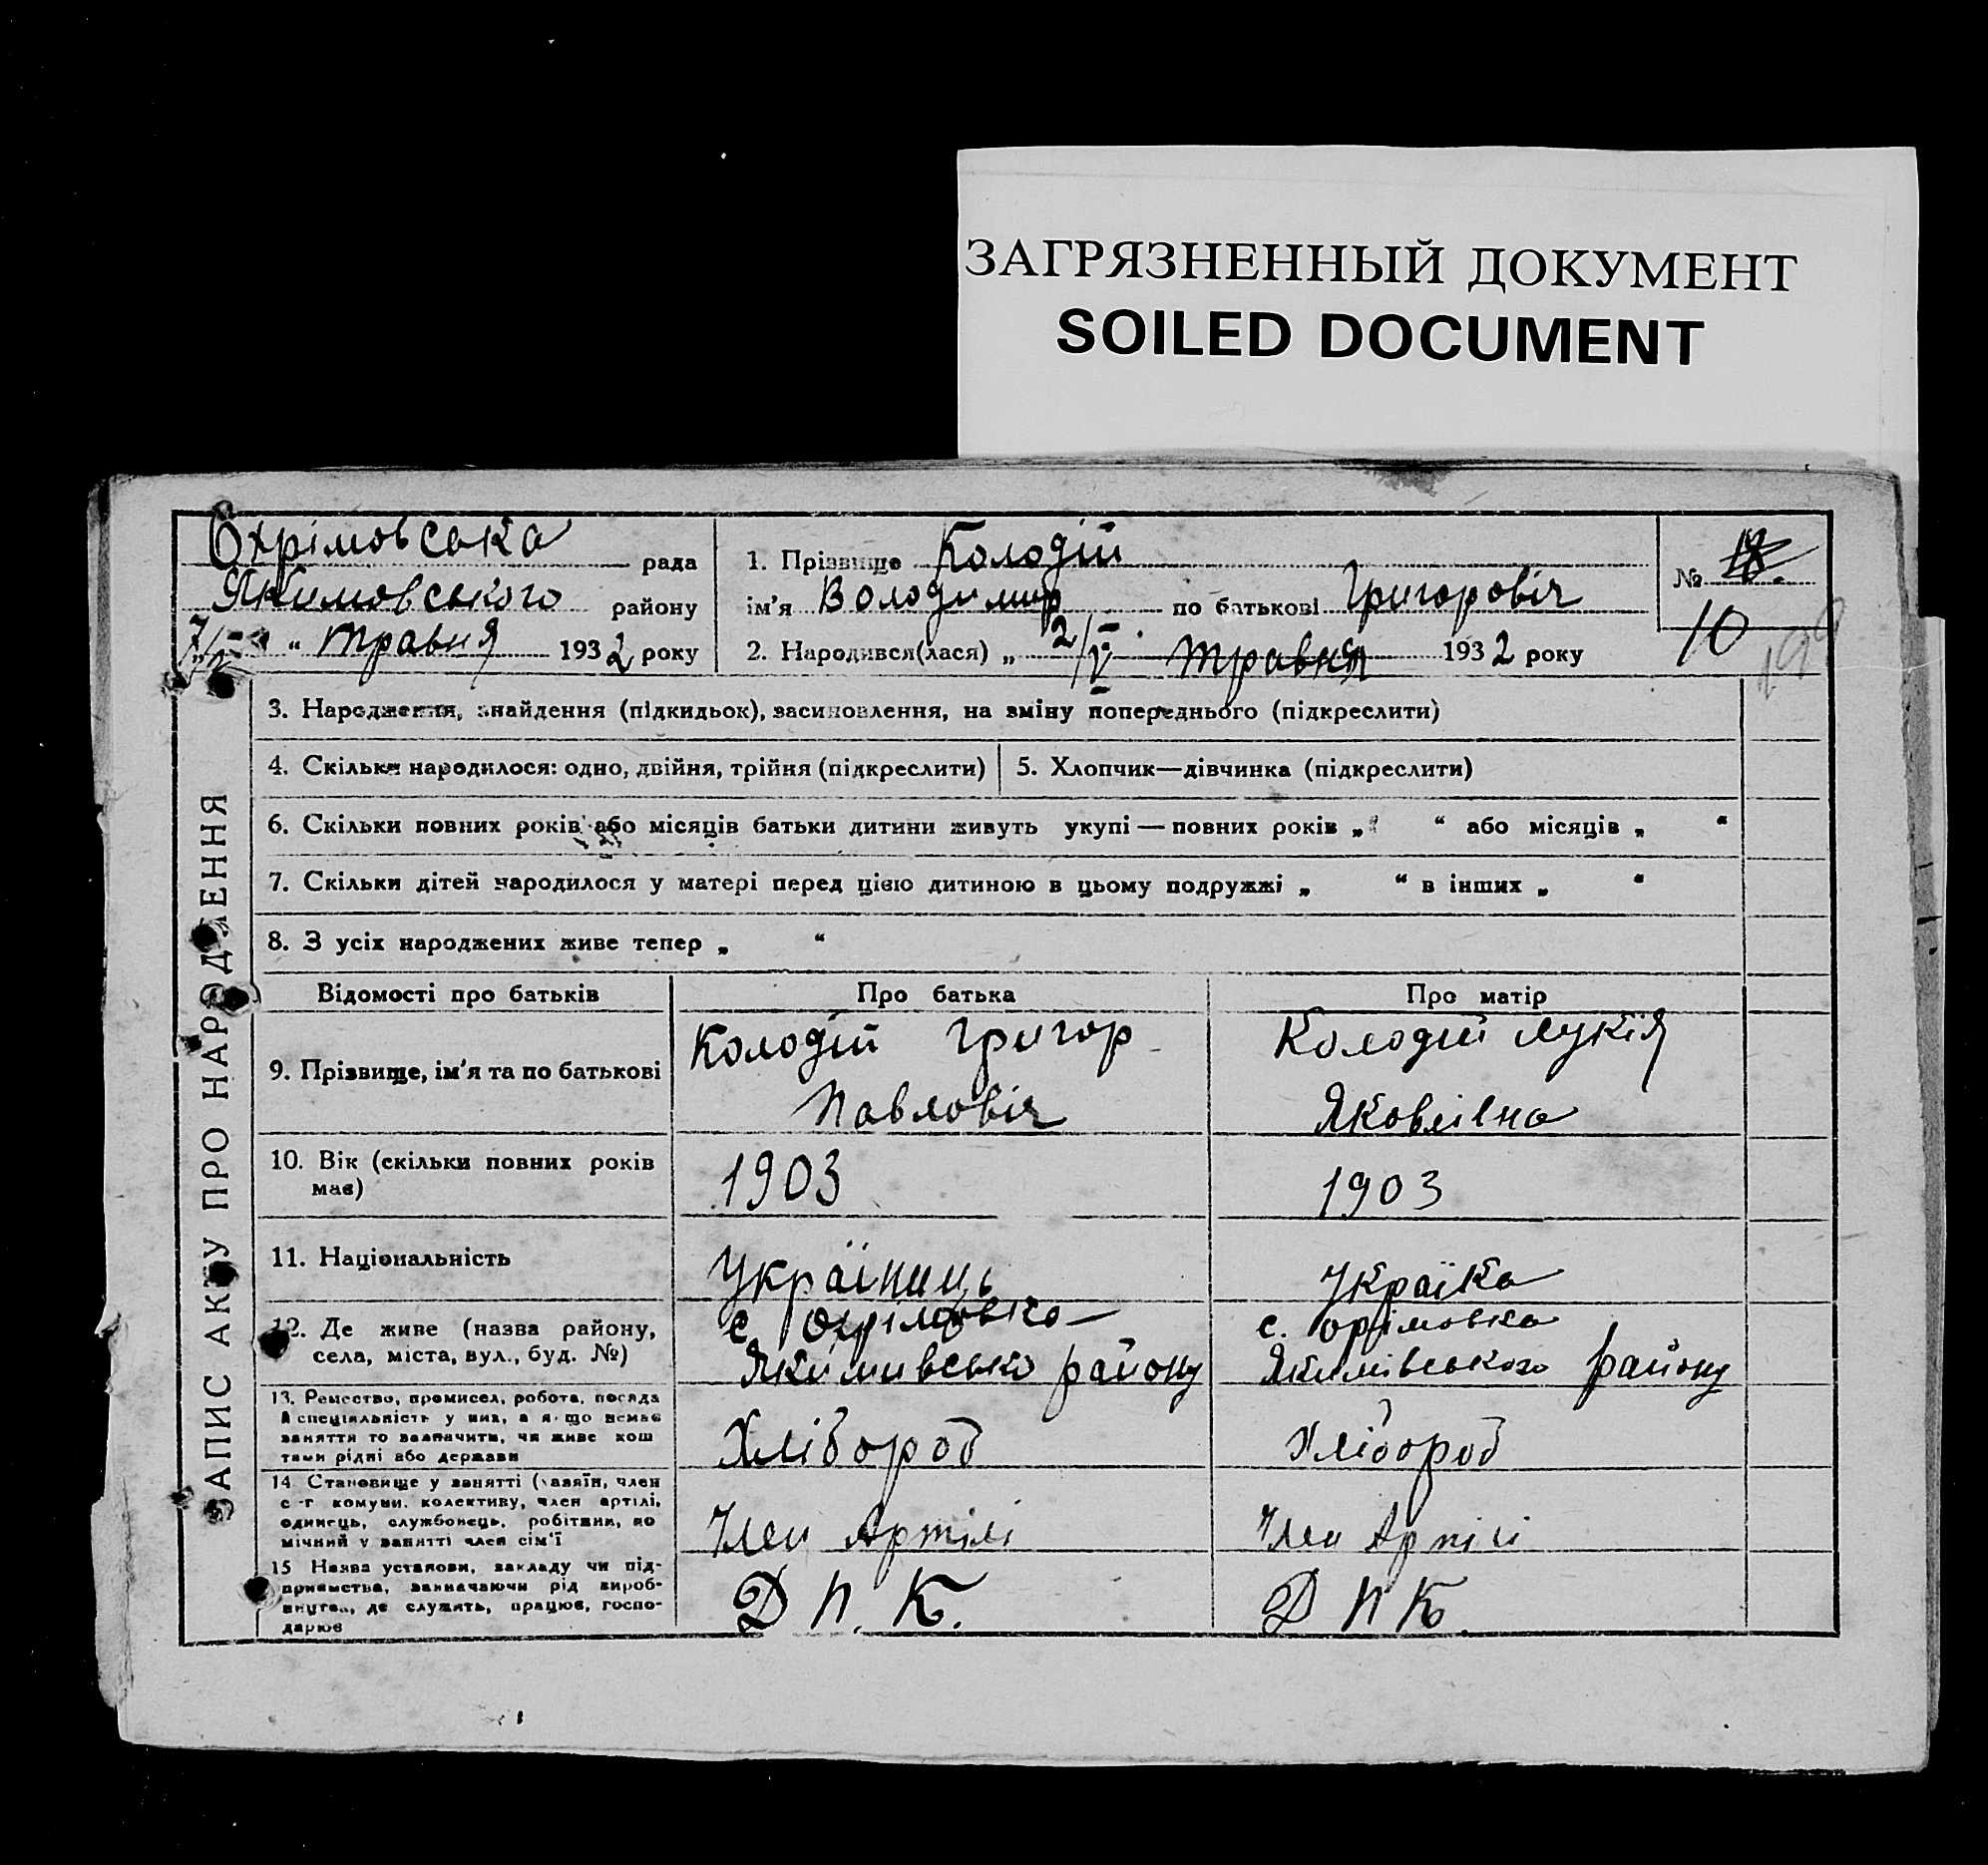 ЗАГРЯЗНЕННЫЙ ДОКУМЕНТ
SOILED DOCUMENT
Охрімовська рада
Якимовського району
7/V " травня 1932 року
1. Прізвище Колодій
ім'я Володимир по батькові Григоровіч
2. Народився(лася) „ 2/V травня 1932 року
№ 18.
10
ЗАПИС АКТУ ПРО НАРОДЖЕННЯ
3. Народження, знайдення (підкидьок), засиновлення, на зміну попереднього (підкреслити)
4. Скільки народилося: одно, двійня, трійня (підкреслити)
5. Хлопчик—дівчинка (підкреслити)
6. Скільки повних років або місяців батьки дитини живуть укупі — повних років „ “ або місяців „ “
7. Скільки дітей народилося у матері перед цією дитиною в цьому подружжі „ “ в інших „ “
8. З усіх народжених живе тепер „ “
Відомості про батьків Про батька Про матір
9. Прізвище, ім'я та по батькові
Колодій Григор
Павловіч
Колодій Лукія
Яковлівна
10. Вік (скільки повних років
має)
1903
1903
11. Національність
Україниць
Україка
12. Де живе (назва району,
села, міста, вул., буд. №)
с. Охрімовка
Якимивсько району
с. Орімовка
Якимівського району
13. Ремество, промисел, робота, посада
й спеціяльність у них, а якщо немає
заняття то зазначити, чи живе кош
тами рідні або держави
Хлібороб
Хлібороб
14 Становище у занятті (хазяїн, член
с.-г комуни. колективу, член артілі,
одинець, службонець, робітник, по
мічний у занятті член сім'ї
Член Артілі
Член Артілі
15 Назва установи, закладу чи під-
приємства, зазначаючи рід вироб-
ництва, де служить, працює, госпо-
дарює
Д П. К.
Д П К.